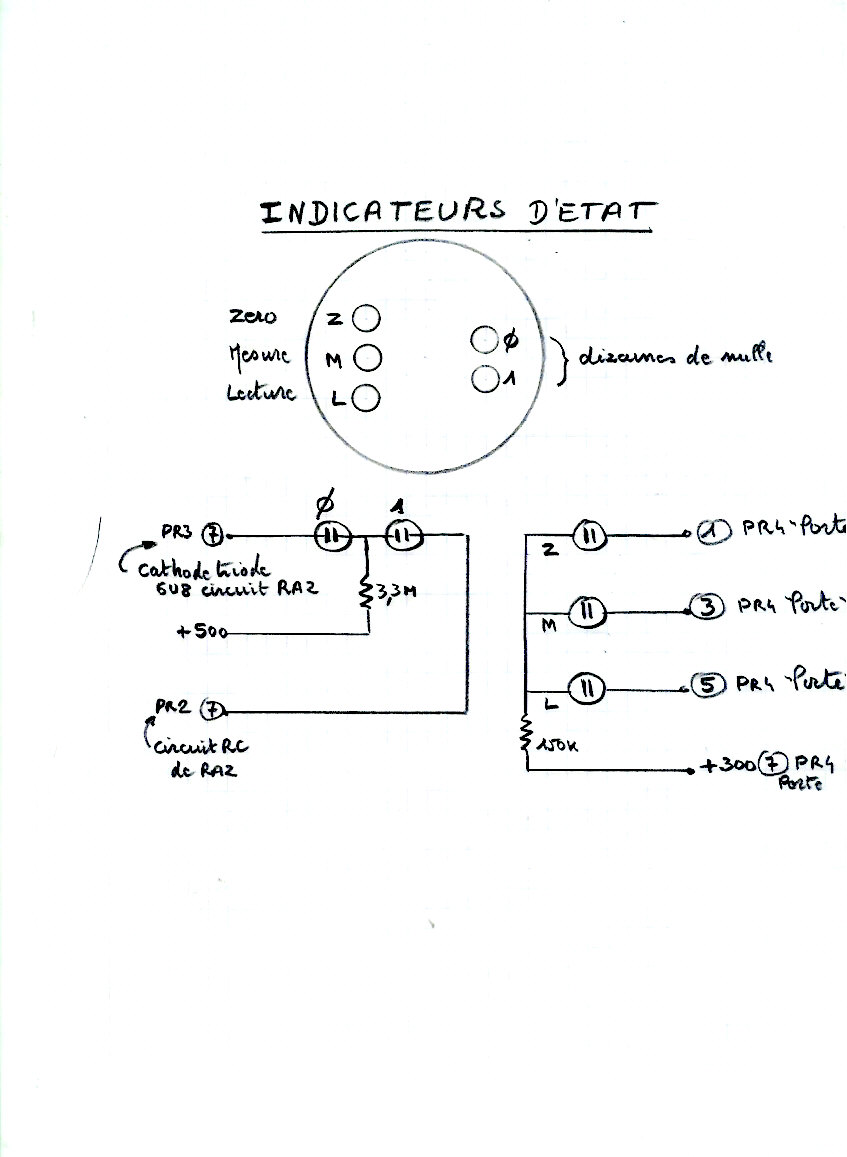 INDICATEURS D'ETAT
Zero Z
Mesure M
Lecture L
ϕ
1
dizaines de mille
ϕ 1
PR3 7
Cathode triode
6U8 circuit RA2
3,3M
+500
PR2 7
circuit RC
de RA2
Z 1 PR4 "Porte
M 3 PR4 "Porte"
L 5 PR4 "Porte
150K
+300 7 PR4
Porte